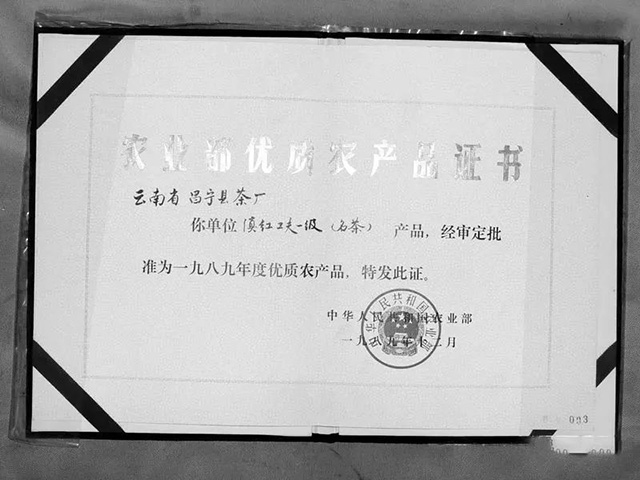 农业部优质农产品证书
云南省昌宁县茶厂
你单位滇红工夫一级（名茶）产品，经审定批
准为一九八九年度优质农产品，特发此证。
中华人民共和国农业部
一九八九年十二月
中华人民共和国农业部
003